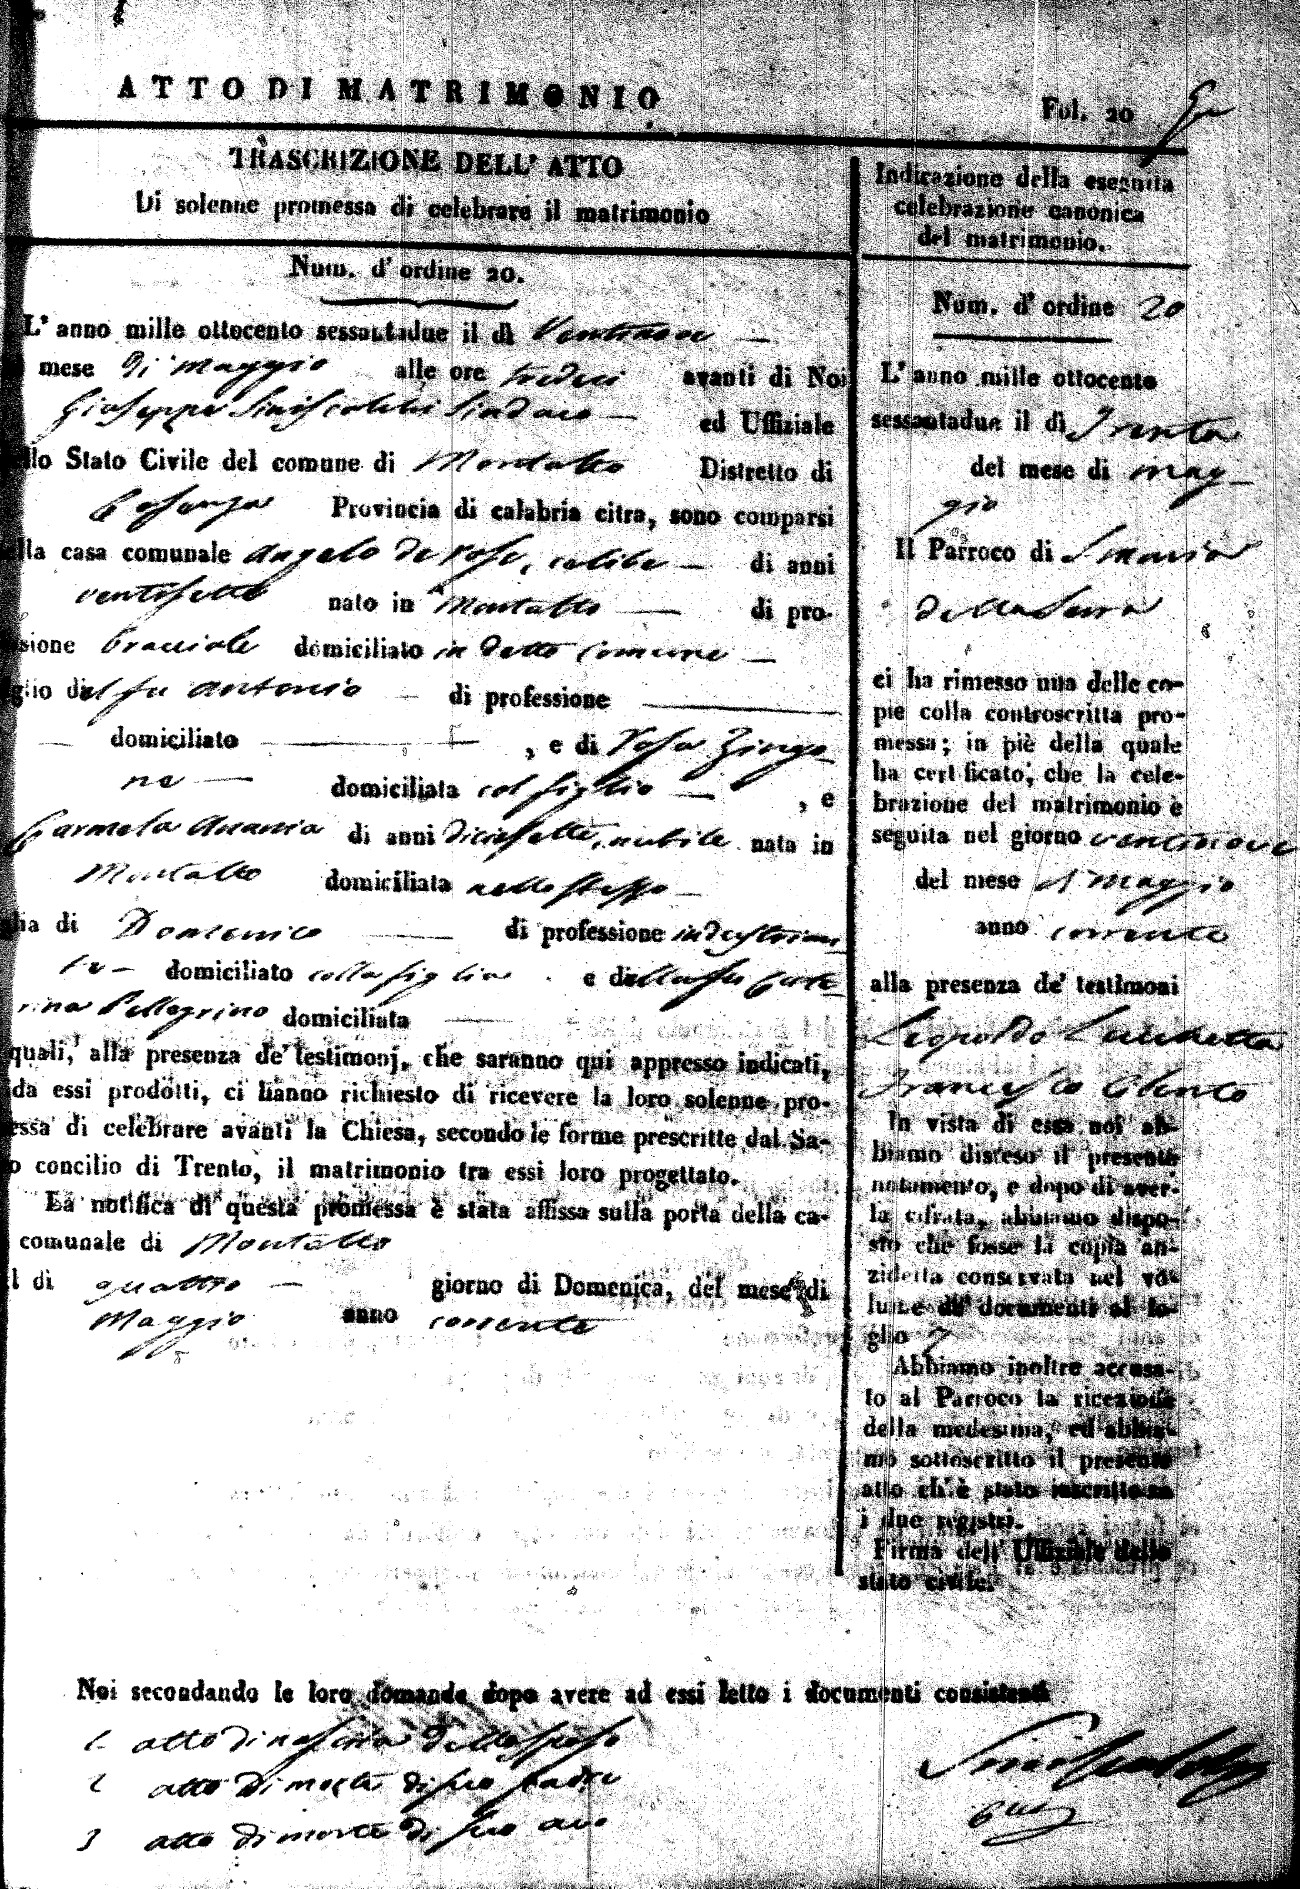 ATTO DI MATRIMONIO
Fol. 20
TRASCRIZIONE DELL' ATTO
Di solenne promessa di celebrare il matrimonio
Num. d' ordine 20.
L' anno mille ottocento sessantadue il dì
mese di maggio alle ore tredici avanti di Noi
Giuseppe Siniscalchi Sindaco ed Uffiziale
llo Stato Civile del comune di Montalto Distretto di
Cosenza Provincia di calabria citra, sono comparsi
lla casa comunale Angelo de Rose, celibe di anni
ventisette nato in Montalto di pro-
sione bracciale domiciliato in detto comune
glio del fu Antonio di professione
domiciliato , e di Rosa Zinga
ne domiciliata col figlio , e
Carmela Anania di anni diciasette, nubile nata in
Montalto domiciliata nello stesso
lia di Domenico di professione industrian
te domiciliato colla figlia e della fu Cate
rina Pellegrino domiciliata
quali, alla presenza de' testimonj, che saranno qui appresso indicati,
da essi prodotti, ci hanno richiesto di ricevere la loro solenne pro-
essa di celebrare avanti la Chiesa, secondo le forme prescritte dal Sa-
o concilio di Trento, il matrimonio tra essi loro progettato.
La notifica di questa promessa è stata affissa sulla porta della ca-
comunale di Montalto
il dì quattro giorno di Domenica, del mese di
Maggio anno corrente
Indicazione della eseguita
celebrazione canonica
del matrimonio.
Num. d' ordine 20
L' anno mille ottocento
sessantadue il dì Trenta
del mese di mag-
gio
Il Parroco di S. Maria
della Serra
ci ha rimesso una delle co-
pie colla controscritta pro-
messa; in piè della quale
ha certificato, che la cele-
brazione del matrimonio è
seguita nel giorno ventinove
del mese di maggio
anno corrente
alla presenza de' testimoni
Leopoldo Lucchetta
Francesco
In vista di essa noi ab-
biamo disteso il presente
notamento, e dopo di aver-
la cifrata, abbiamo dispo-
sto che fosse la copia an-
zidetta conservata nel vo-
lume de' documenti al fo-
glio 7
Abbiamo inoltre accusa-
to al Parroco la ricezione
della medesima, ed abbia-
mo sottoscritto il presente
atto ch' è stato inscritto su
i due registri.
Firma dell' Uffiziale dello
stato civile.
Noi secondando le loro domande dopo avere ad essi letto i documenti consistenti
1 atto di nascita dello sposo
2 atto di morte di suo padre
3 atto di morte di suo avo
Siniscalchi